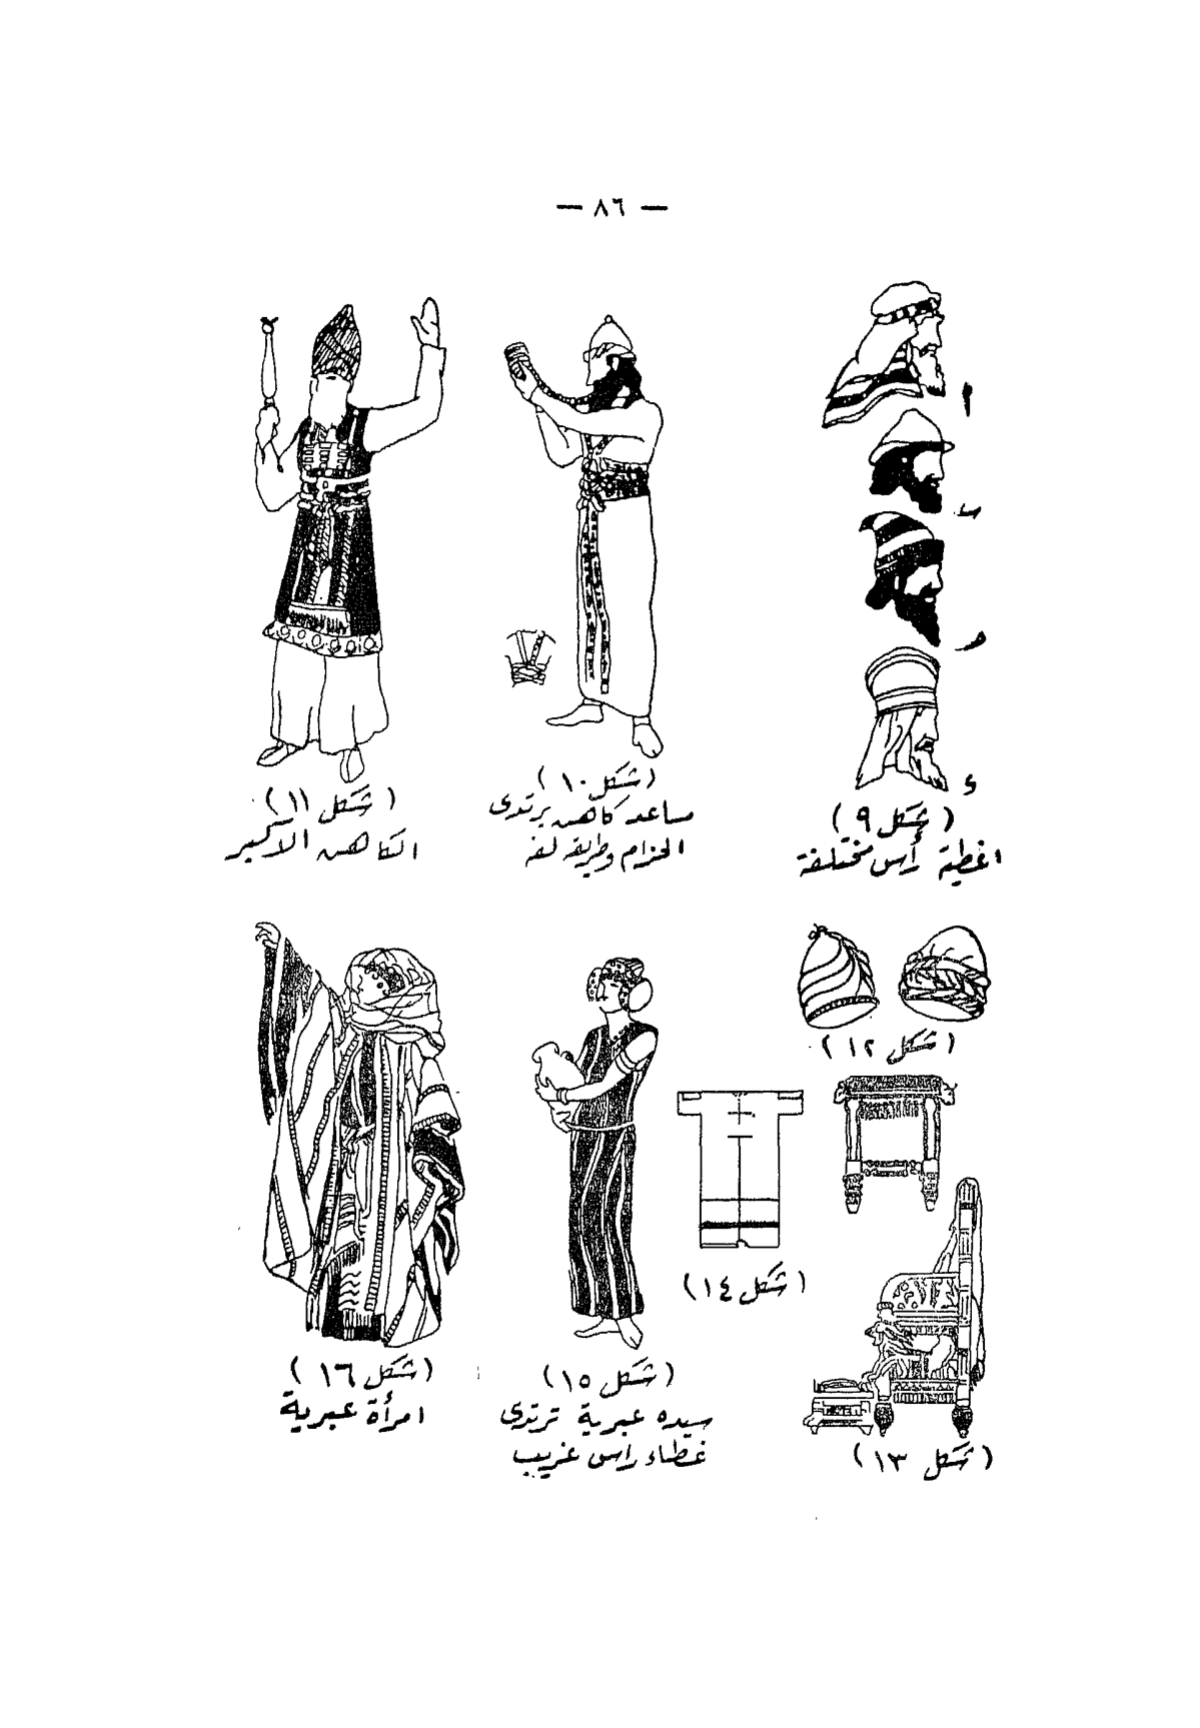 — ٨٦ —
أ
ب
هـ
ء
( شكل ٩ )
اغطية رأس مختلفة
( شكل ١٠ )
مساعد كاهن يرتدى
الحزام وطريقة لفه
( شكل ١١ )
الكاهن الأكبر
( شكل ١٢ )
( شكل ١٣ )
( شكل ١٤ )
( شكل ١٥ )
سيده عبرية ترتدى
غطاء راس غريب
( شكل ١٦ )
امرأة عبرية